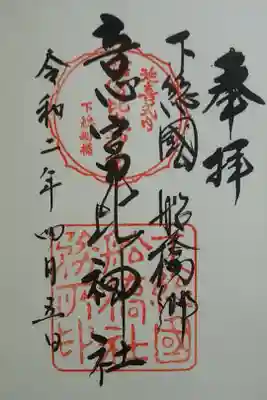 奉拝
下総國 船橋郷
意富比神社
令和二年四月五日
延喜式内
下総船橋